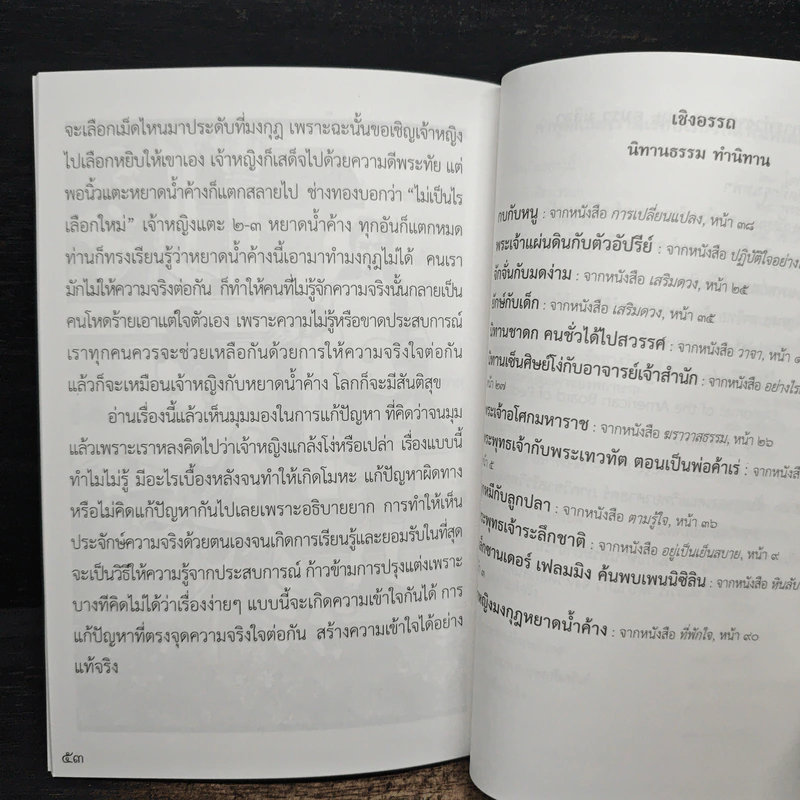 จะเลือกเม็ดไหนมาประดับที่มงกุฎ เพราะฉะนั้นขอเชิญเจ้าหญิง
ไปเลือกหยิบให้เขาเอง เจ้าหญิงก็เสด็จไปด้วยความดีพระทัย แต่
พอนิ้วแตะหยาดน้ำค้างก็แตกสลายไป ช่างทองบอกว่า "ไม่เป็นไร
เลือกใหม่" เจ้าหญิงแตะ ๒-๓ หยาดน้ำค้าง ทุกอันก็แตกหมด
ท่านก็ทรงเรียนรู้ว่าหยาดน้ำค้างนี้เอามาทำมงกุฎไม่ได้ คนเรา
มักไม่ให้ความจริงต่อกัน ก็ทำให้คนที่ไม่รู้จักความจริงนั้นกลายเป็น
คนโหดร้ายเอาแต่ใจตัวเอง เพราะความไม่รู้หรือขาดประสบการณ์
เราทุกคนควรจะช่วยเหลือกันด้วยการให้ความจริงใจต่อกัน
แล้วก็จะเหมือนเจ้าหญิงกับหยาดน้ำค้าง โลกก็จะมีสันติสุข
อ่านเรื่องนี้แล้วเห็นมุมมองในการแก้ปัญหา ที่คิดว่าจนมุม
แล้วเพราะเราหลงคิดไปว่าเจ้าหญิงแกล้งโง่หรือเปล่า เรื่องแบบนี้
ทำไมไม่รู้ มีอะไรเบื้องหลังจนทำให้เกิดโมหะ แก้ปัญหาผิดทาง
หรือไม่คิดแก้ปัญหากันไปเลยเพราะอธิบายยาก การทำให้เห็น
ประจักษ์ความจริงด้วยตนเองจนเกิดการเรียนรู้และยอมรับในที่สุด
จะเป็นวิธีให้ความรู้จากประสบการณ์ ก้าวข้ามการปรุงแต่งเพราะ
บางทีคิดไม่ได้ว่าเรื่องง่ายๆ แบบนี้จะเกิดความเข้าใจกันได้ การ
แก้ปัญหาที่ตรงจุดความจริงใจต่อกัน สร้างความเข้าใจได้อย่าง
แท้จริง
๕๓
เชิงอรรถ
นิทานธรรม ทำนิทาน
กบกับหนู : จากหนังสือ การเปลี่ยนแปลง, หน้า ๓๘
พระเจ้าแผ่นดินกับตัวอัปรีย์ : จากหนังสือ ปฏิบัติใจอย่าง
จักจั่นกับมดง่าม : จากหนังสือ เสริมดวง, หน้า ๒๕
ยักษ์กับเด็ก : จากหนังสือ เสริมดวง, หน้า ๓๕
นิทานชาดก คนชั่วได้ไปสวรรค์ : จากหนังสือ วาจา, หน้า
นิทานเซ็นศิษย์โง่กับอาจารย์เจ้าสำนัก : จากหนังสือ อย่างไร
๒๗
พระเจ้าอโศกมหาราช : จากหนังสือ ฆราวาสธรรม, หน้า ๒๖
พระพุทธเจ้ากับพระเทวทัต ตอนเป็นพ่อค้าเร่ : จากหนังสือ
๕
ลูกหมีกับลูกปลา : จากหนังสือ ตามรู้ใจ, หน้า ๓๖
พระพุทธเจ้าระลึกชาติ : จากหนังสือ อยู่เป็นเย็นสบาย, หน้า ๙
เฟลมมิง ค้นพบเพนนิซิลิน : จากหนังสือ
๓
หญิงมงกุฎหยาดน้ำค้าง : จากหนังสือ ที่พักใจ, หน้า ๙๐